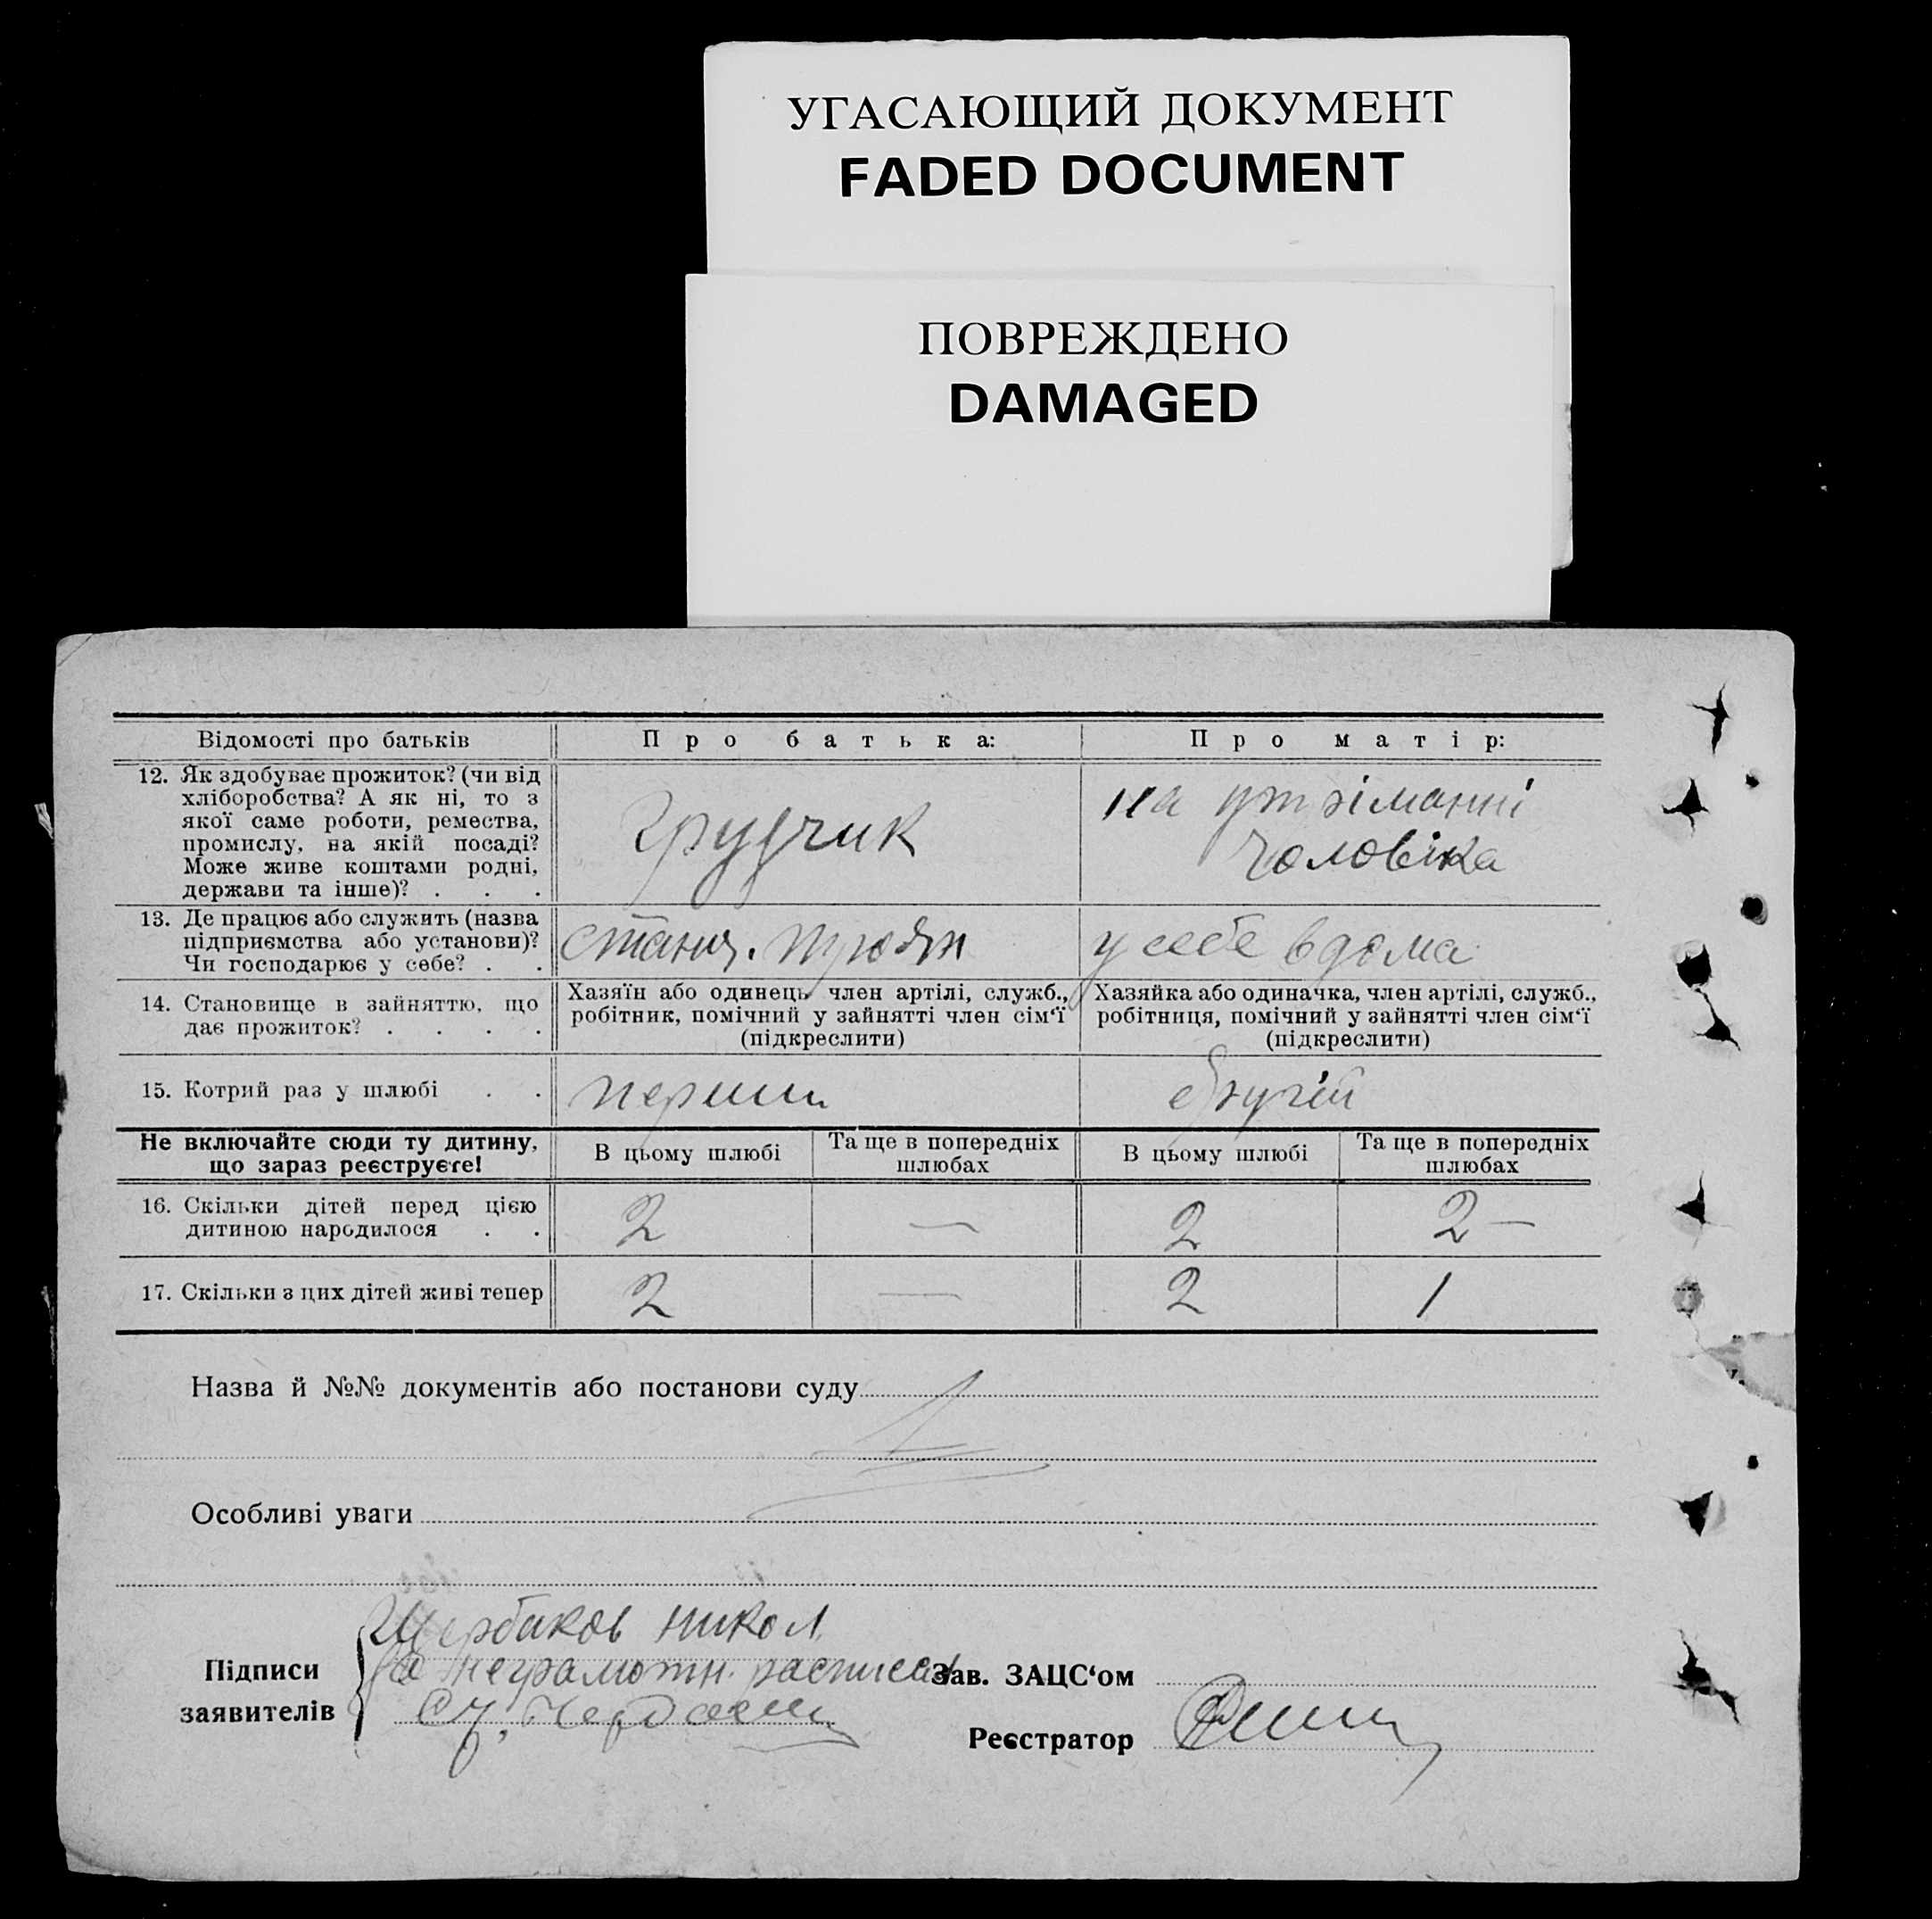 УГАСАЮЩИЙ ДОКУМЕНТ
FADED DOCUMENT
ПОВРЕЖДЕНО
DAMAGED
Відомості про батьків
Про батька:
Про матір:
12. Як здобуває прожиток? (чи від
хліборобства? А як ні, то з
якої саме роботи, ремества,
промислу, на якій посаді?
Може живе коштами родні,
держави та інше)? . . .
грузчик
на утріманні
чоловіка
13. Де працює або служить (назва
підприємства або установи)?
Чи господарює у себе? . .
станц.
у себе вдома
14. Становище в зайняттю, що
дає прожиток? . . . .
Хазяїн або одинець член артілі, служб.,
робітник, помічний у зайнятті член сім'ї
(підкреслити)
Хазяйка або одиначка, член артілі, служб.,
робітниця, помічний у зайнятті член сім'ї
(підкреслити)
15. Котрий раз у шлюбі . .
перший
другій
Не включайте сюди ту дитину,
що зараз реєструєте!
В цьому шлюбі
Та ще в попередніх
шлюбах
В цьому шлюбі
Та ще в попередніх
шлюбах
16. Скільки дітей перед цією
дитиною народилося . .
2
—
2
2 —
17. Скільки з цих дітей живі тепер
2
—
2
1
Назва й №№ документів або постанови суду
Особливі уваги
Підписи
заявителів
Щербаков Никол.
за неграмотн. расписал
Зав. ЗАЦС'ом
Реєстратор